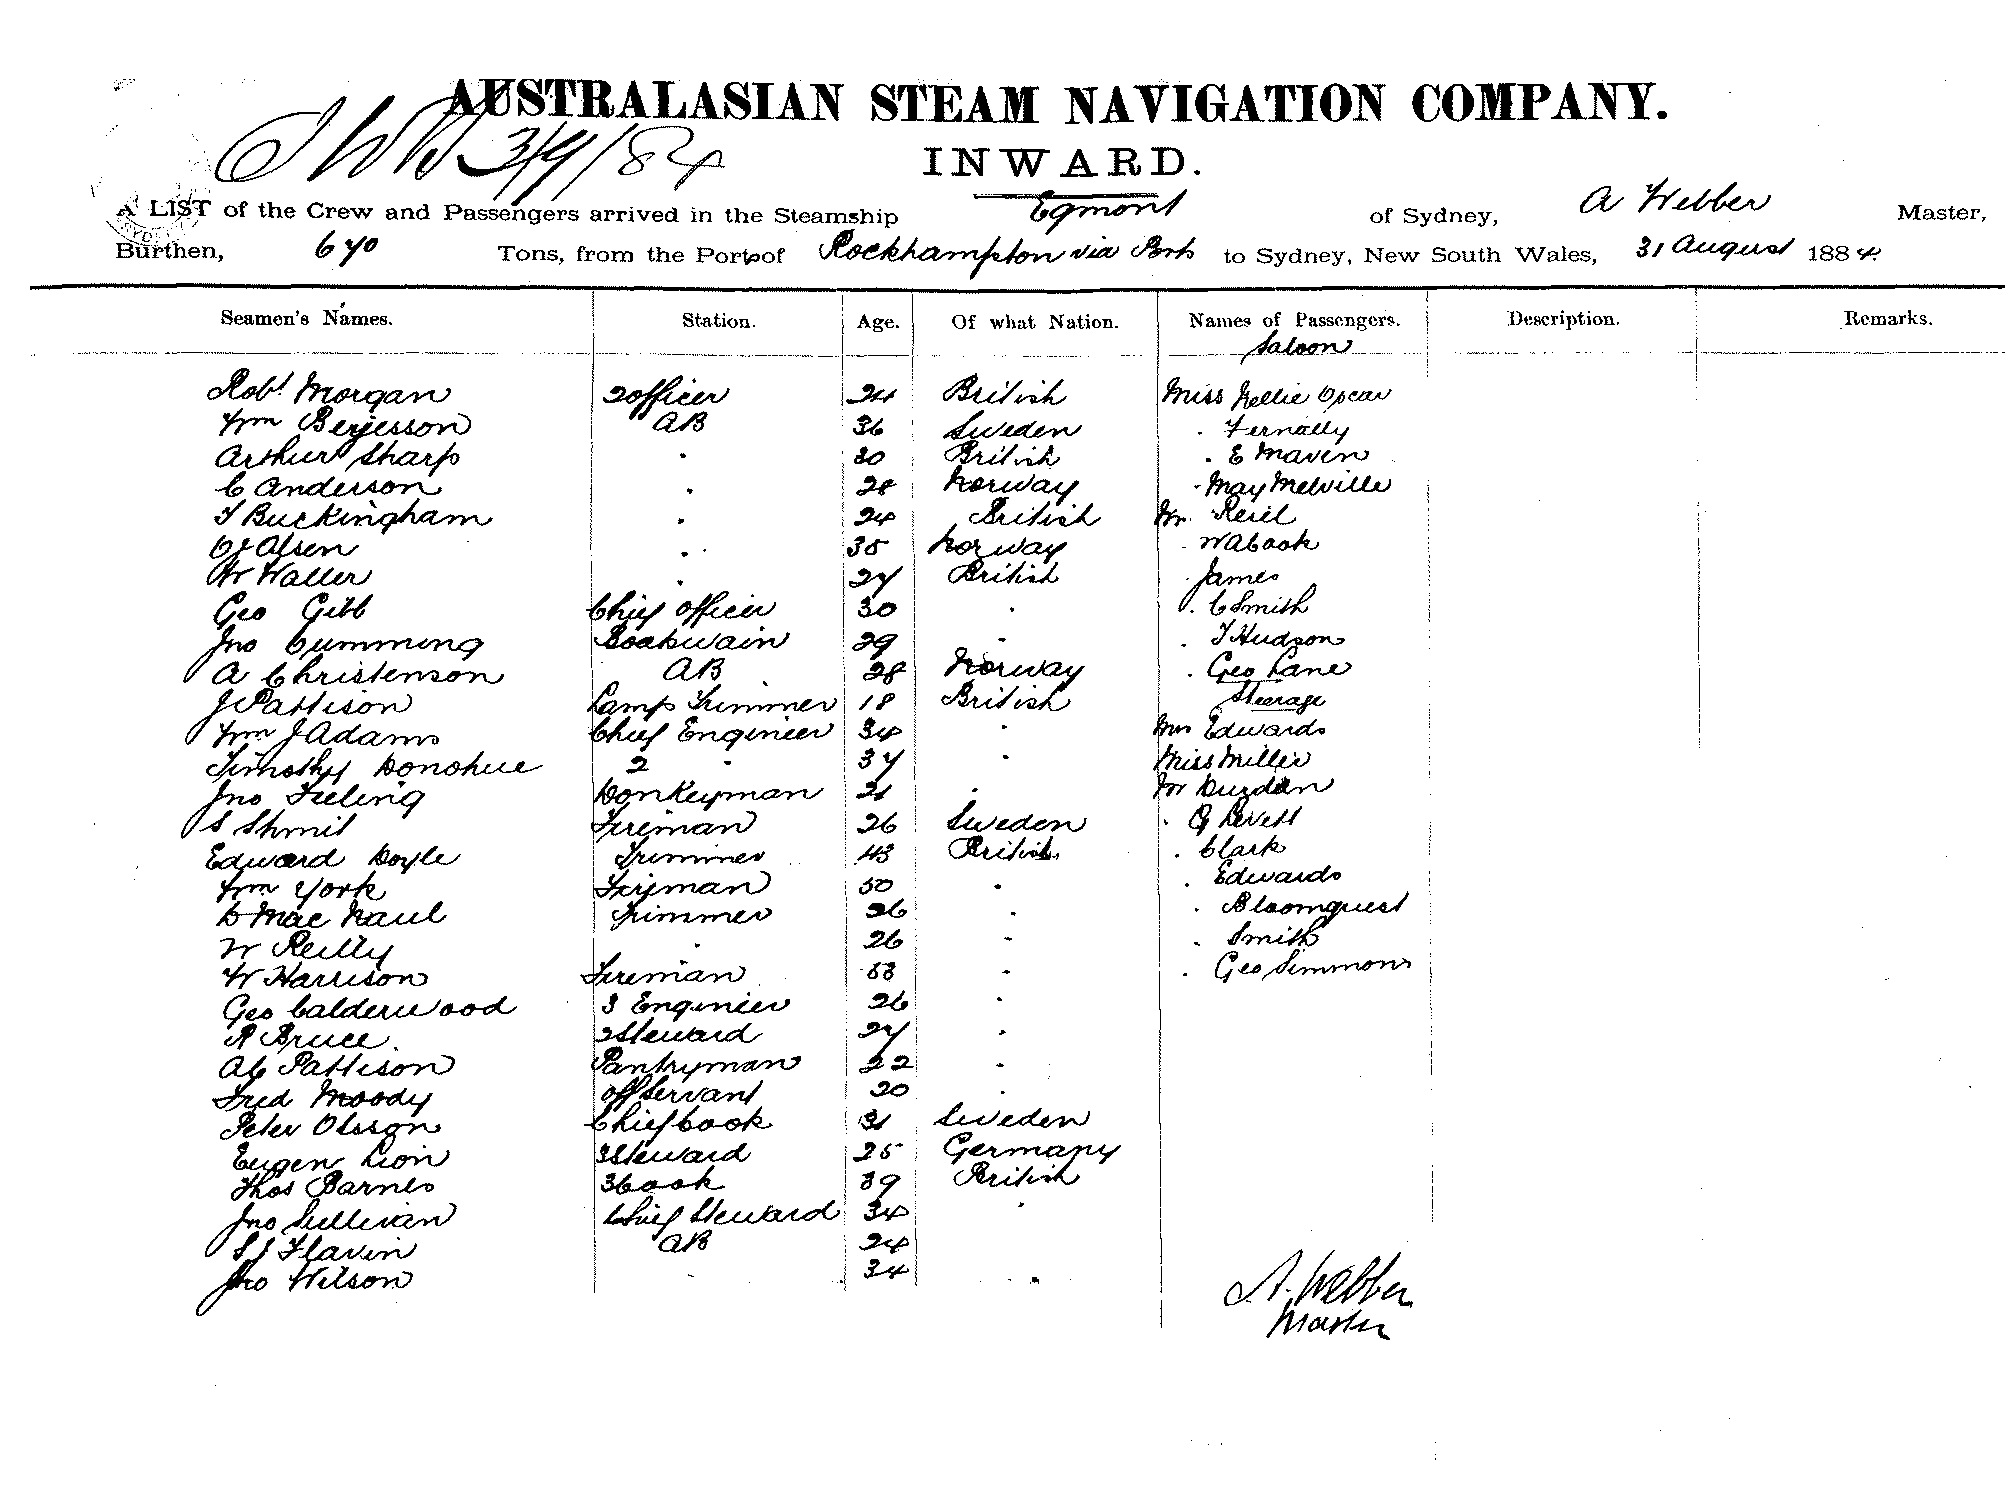 AUSTRALASIAN STEAM NAVIGATION COMPANY.
3/9/84
INWARD.
A LIST of the Crew and Passengers arrived in the Steamship Egmont of Sydney, A Webber Master,
Burthen, 670 Tons, from the Port of Rockhampton via Ports to Sydney, New South Wales, 31 August 1884
Seamen's Names. Station. Age. Of what Nation. Names of Passengers. Description. Remarks.
Saloon
Robt Morgan 2 officer 24 British Miss Nellie Oscar
Wm Berjesson AB 36 Sweden . Fernally
Arthur Sharp . 30 British . E Maven
C Anderson . 28 Norway . May Melville
T Buckingham . 24 British Mr.
Olsen . 35 Norway . W A Cook
W Waller . 27 British . James
Geo Gibb Chief officer 30 . . C Smith
Jno Cumming Boatswain 29 . . T Hudson
A Christenson AB 28 Norway . Geo Lane
J Pattison Lamp Trimmer 18 British Steerage
Wm J Adams Chief Engineer 34 . Mrs Edwards
Timothy Donohue 2 . 37 . Miss Miller
Jno Feeling Donkeyman 21 . Mr Durdan
S Shmit Fireman 26 Sweden . G Levett
Edward Doyle Trimmer 43 British . Clark
Wm York Fireman 50 . . Edwards
D Mac Naul Trimmer 26 . . Bloomquest
W Reilly . 26 . . Smith
W Harrison Fireman 53 . . Geo Simmons
Geo Calderwood 3 Engineer 26 .
R Bruce 2 Steward 27 .
A C Pattison Pantryman 22 .
Fred Moody off Servant 20 .
Peter Olsson Chief Cook 31 Sweden
Eugen Lion 3 Steward 25 Germany
Thos Barnes 3 Cook 39 British
Jno Sullivan Chief Steward 34 .
S J Flavin AB 24
Jno Wilson . 34 .
A. Webber
Master